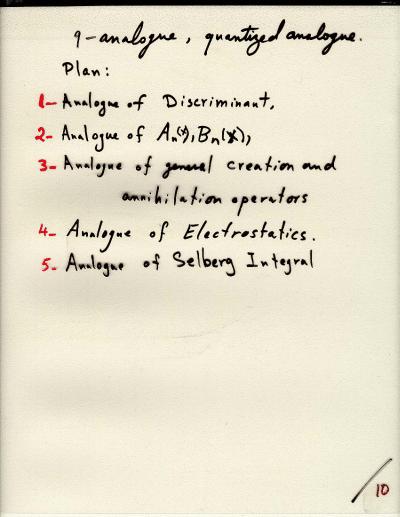 q-analogue, quantized analogue.
Plan:
1- Analogue of Discriminant,
2- Analogue of An(x), Bn(x),
3- Analogue of general creation and
annihilation operators
4- Analogue of Electrostatics.
5- Analogue of Selberg Integral
10